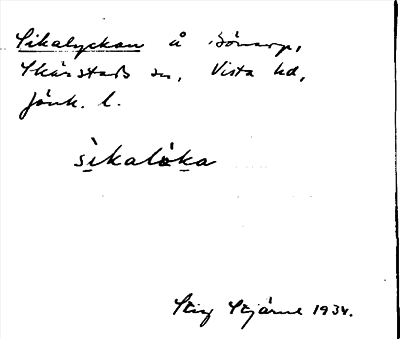 Sikalyckan å Bönarp,
Skärstads sn, Vista hd,
Jönk. l.
sikalöka
Stig Stjärne 1934.